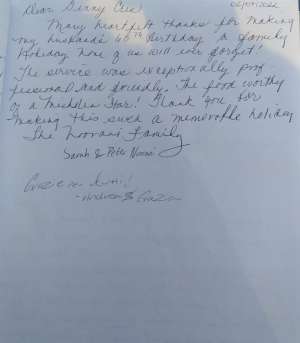 Dear Sunny Crew!
Many heartfelt thanks for making
my husband's 60th Birthday a family
Holiday none of us will ever forget!
The service was exceptionally prof
fessional and friendly. The food worthy
of a Michelin Star! Thank you for
making this such a memorable holiday
The Noorani Family
Sarah & Peter
Grazie
- Andrea & Grazia